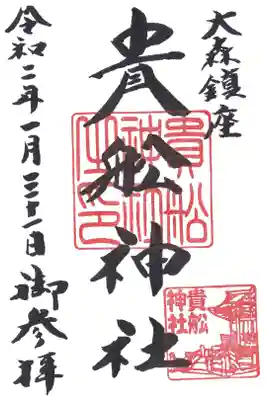 大森鎮座
貴船神社
令和二年一月三十一日御参拝
貴船神社之印
貴船神社